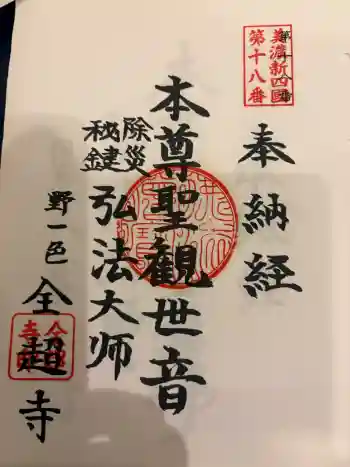 美濃新四國
第十八番
奉納経
本尊聖觀世音
除災
秘鍵
弘法大師
野一色
全超寺